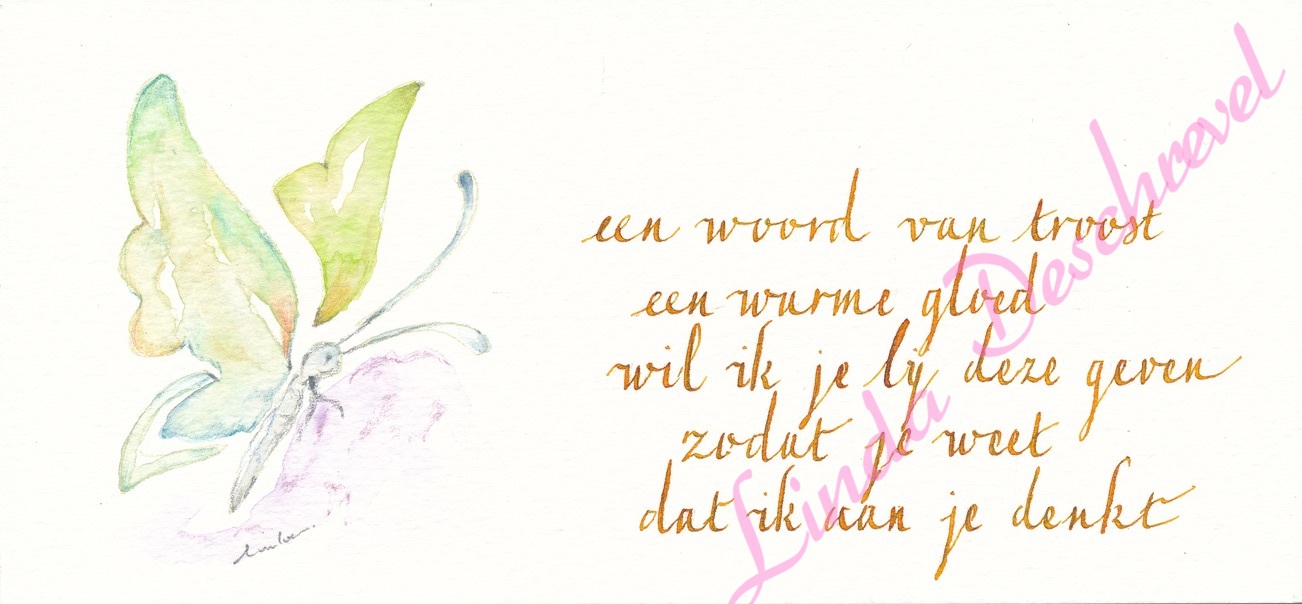 een woord van troost
een warme gloed
wil ik je bij deze geven
zodat je weet
dat ik aan je denkt
Linda Deschrevel